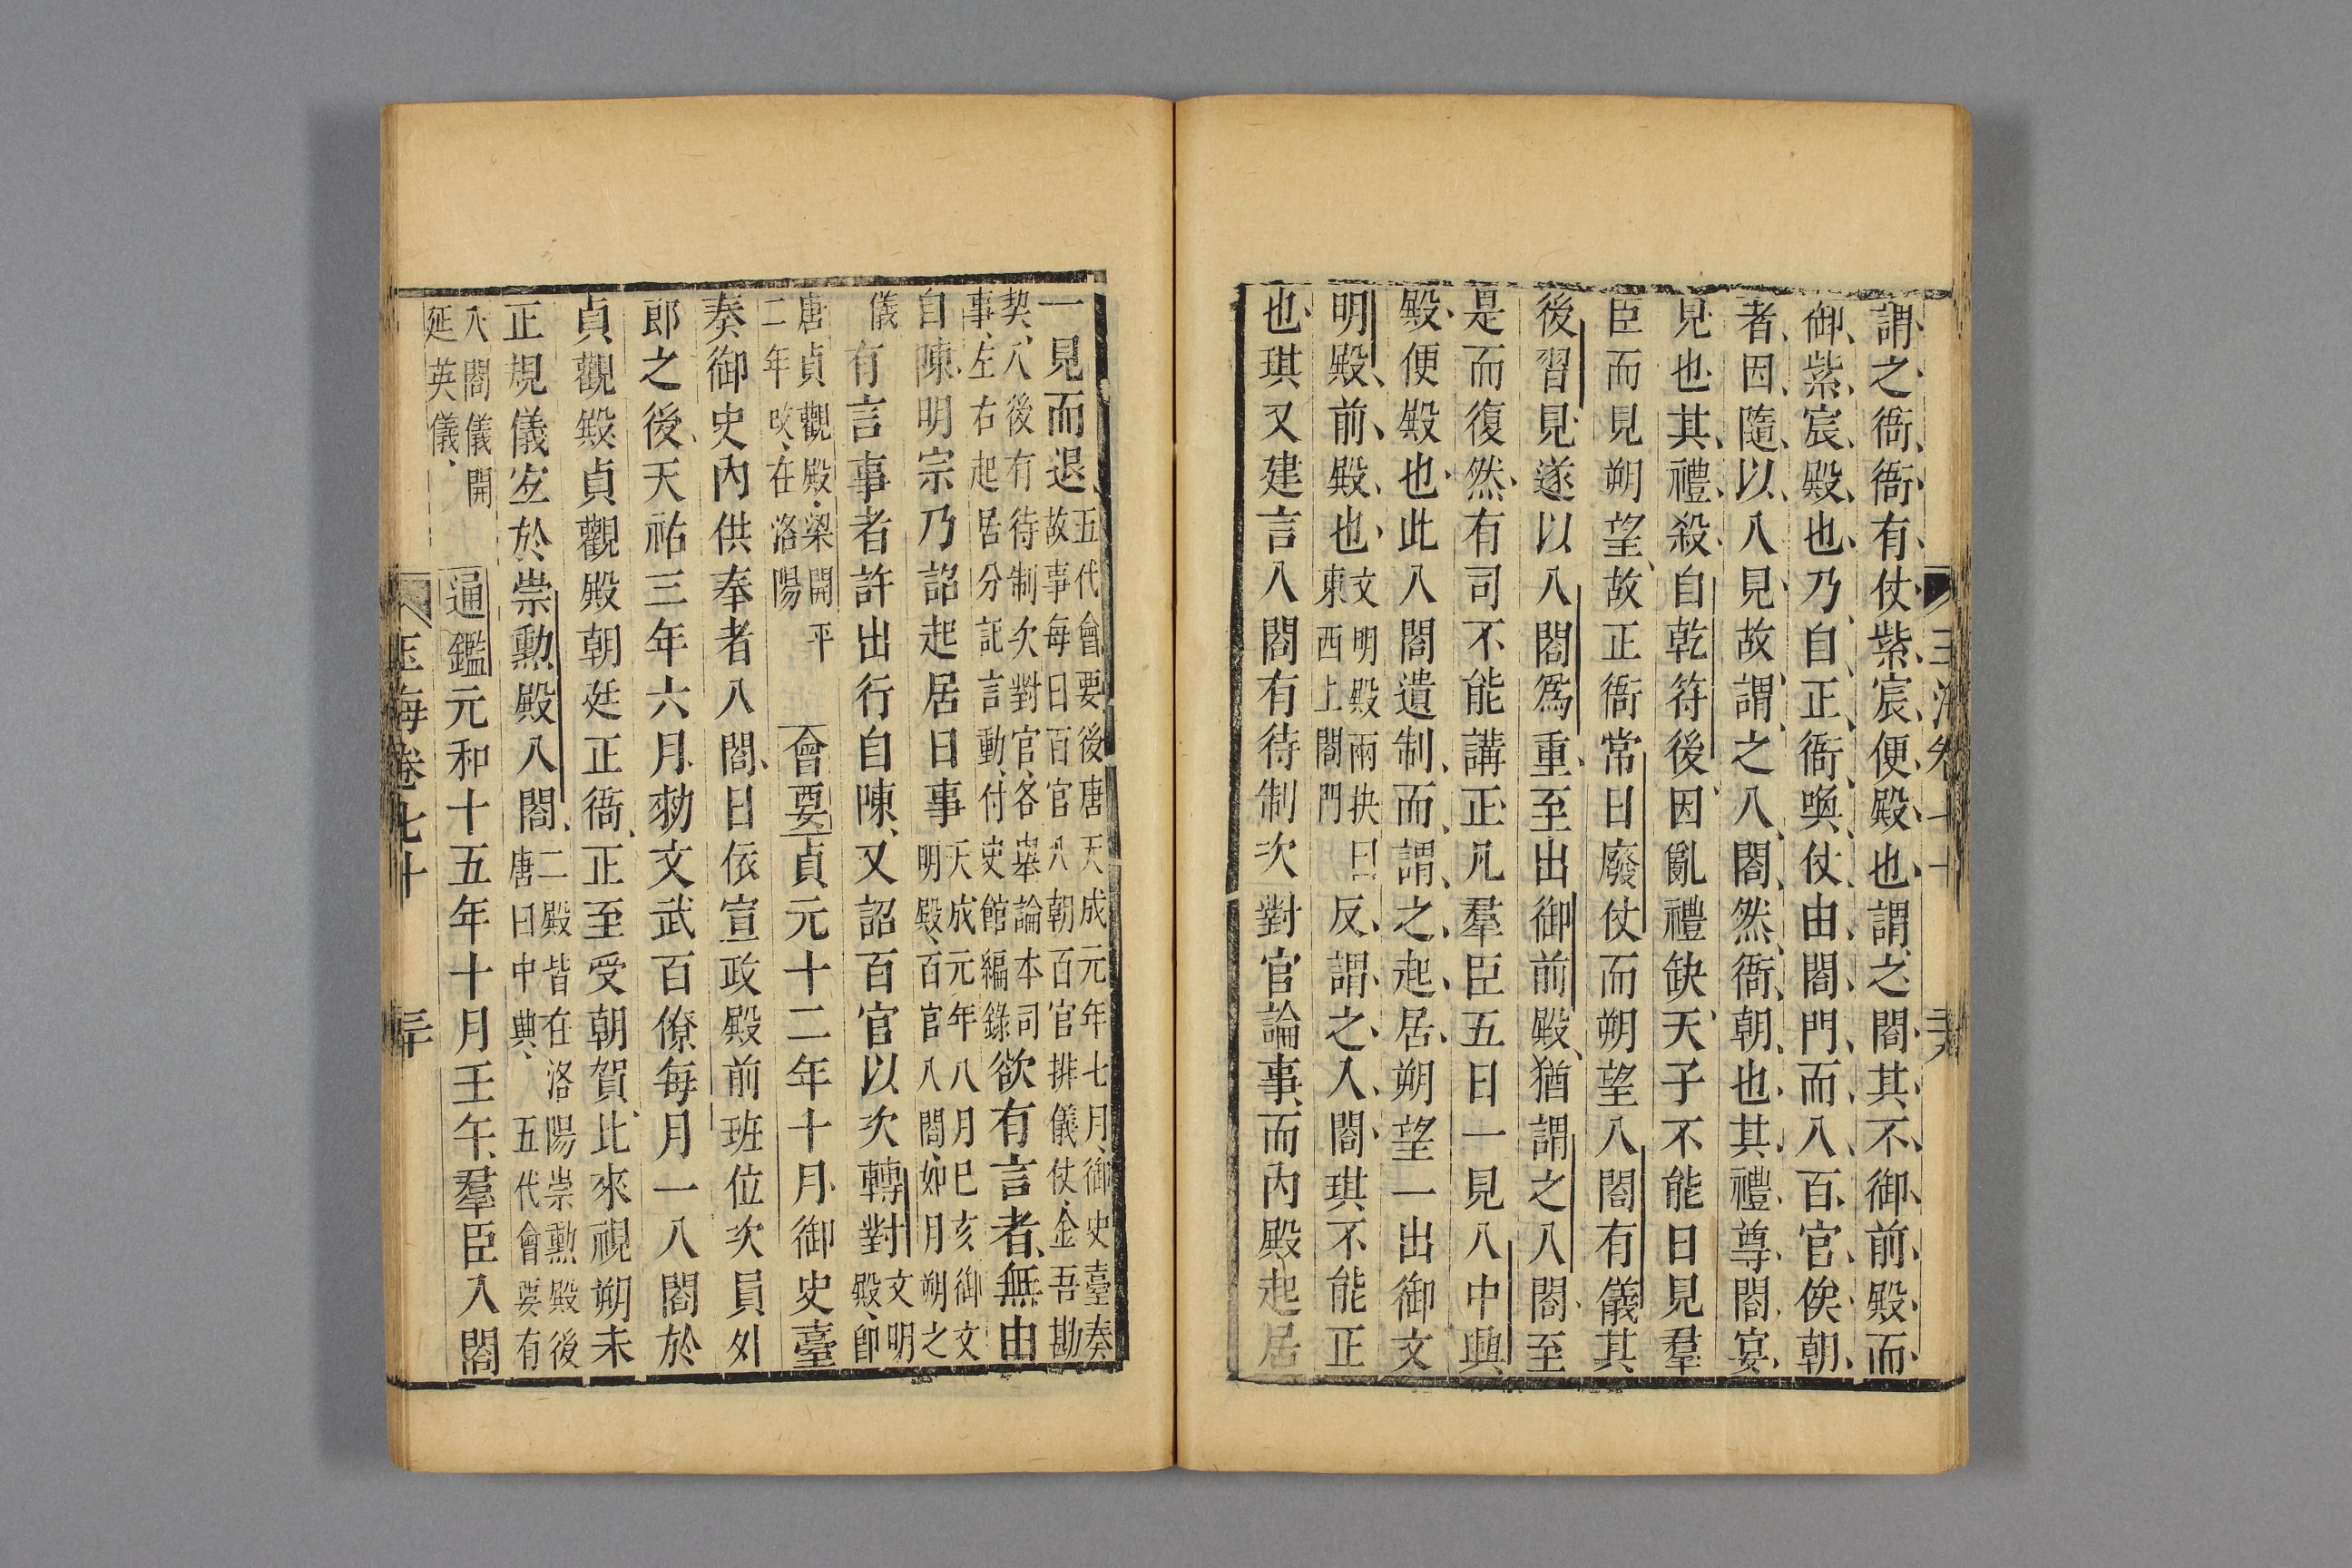 玉海卷七十
謂之衙衙有仗紫宸便殿也謂之閤其不御前殿而
御紫宸殿也乃自正衙喚仗由閤門而入百官俟朝
者因隨以入見故謂之入閤然衙朝也其禮尊閤宴
見也其禮殺自乾符後因亂禮缺天子不能日見羣
臣而見朔望故正衙常日廢仗而朔望入閤有儀其
後習見遂以入閤爲重至出御前殿猶謂之入閤至
是而復然有司不能講正凡羣臣五日一見入中興
殿便殿也此入閤遺制而謂之起居朔望一出御文
明殿前殿也文明殿兩挾曰
東西上閤門反謂之入閤琪不能正
也琪又建言入閤有待制次對官論事而內殿起居
一見而退五代會要後唐天成元年七月御史臺奏
故事每日百官入朝百官排儀仗金吾勘
契入後有待制次對官各舉論本司
事左右起居分記言動付史館編錄欲有言者無由
自陳明宗乃詔起居日事天成元年八月己亥御文
明殿百官入閤如月朔之
儀有言事者許出行自陳又詔百官以次轉對文明
殿卽
唐貞觀殿梁開平
二年改在洛陽會要貞元十二年十月御史臺
奏御史內供奉者入閤日依宣政殿前班位次員外
郎之後天祐三年六月勑文武百僚每月一入閤於
貞觀殿貞觀殿朝廷正衙正至受朝賀比來視朔未
正規儀宜於崇勳殿入閤二殿皆在洛陽崇勳殿後
唐曰中興五代會要有
入閤儀開
延英儀通鑑元和十五年十月壬午羣臣入閤
玉海卷七十
三十